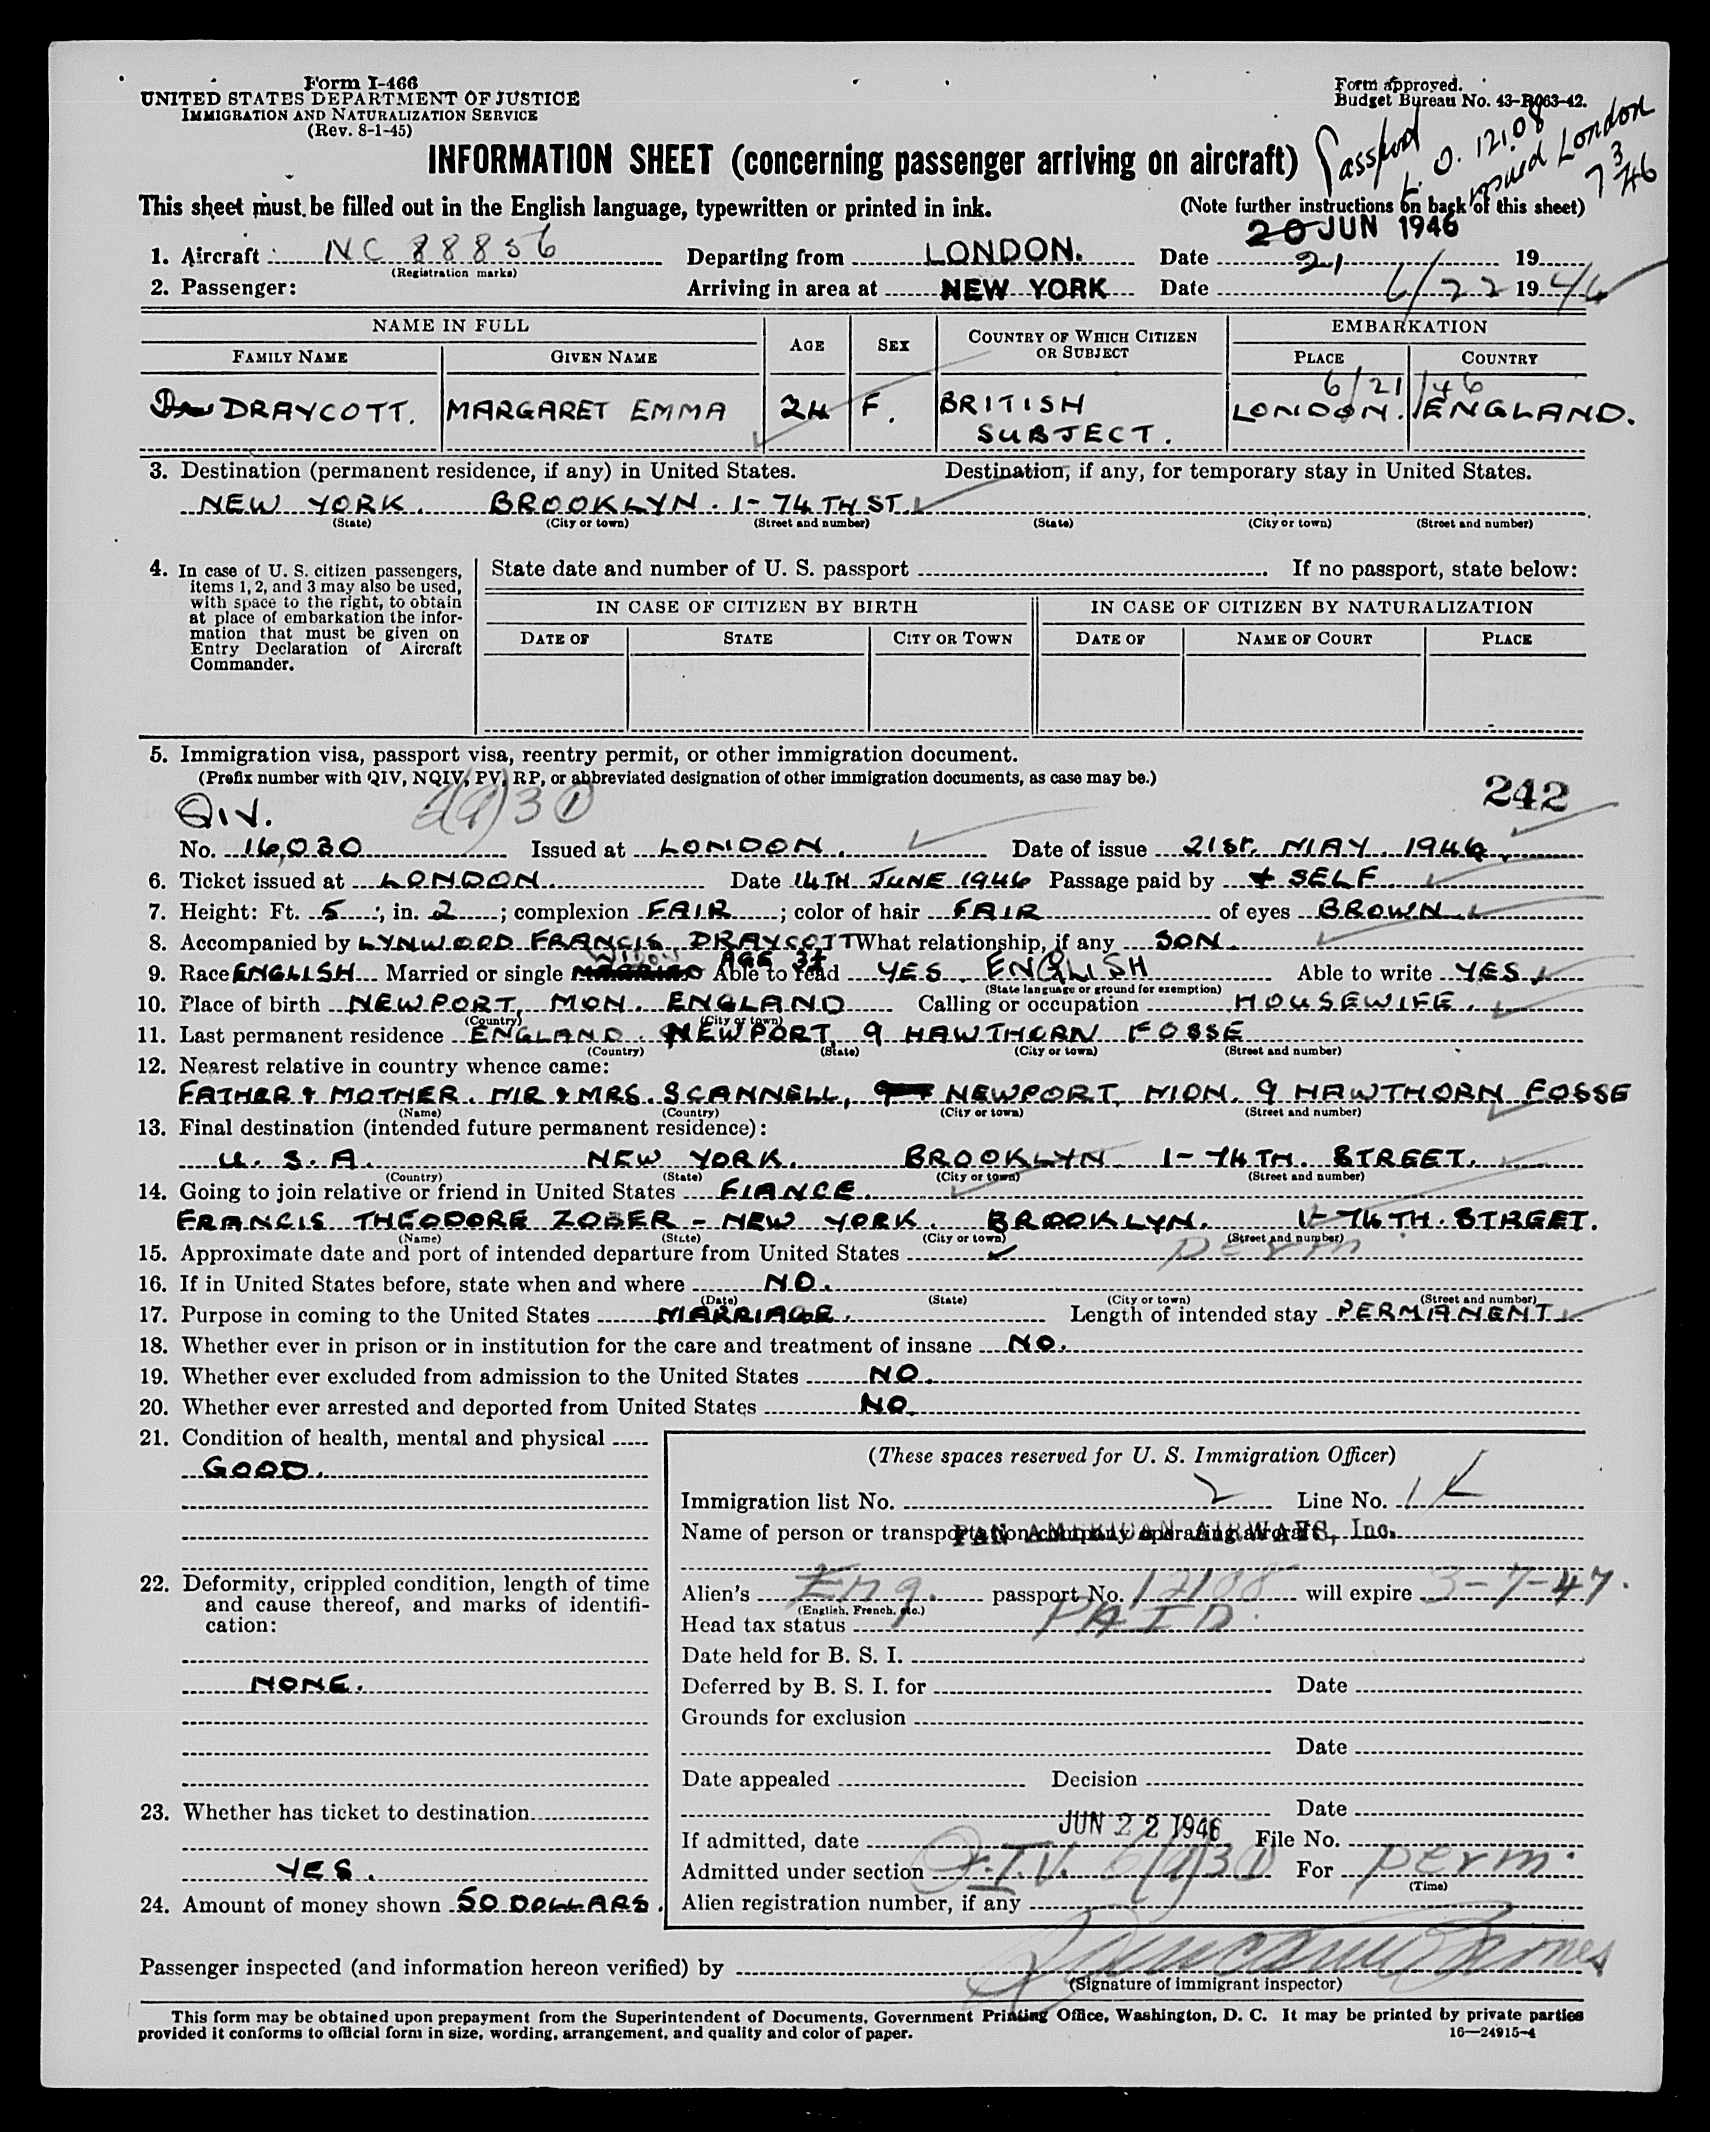 Form I-466
UNITED STATES DEPARTMENT OF JUSTICE
IMMIGRATION AND NATURALIZATION SERVICE
(Rev. 8-1-45)
Form approved.
Budget Bureau No. 43-R063-42.
INFORMATION SHEET (concerning passenger arriving on aircraft)
Passport
L. O. 12108
issued London
7 3/46
This sheet must be filled out in the English language, typewritten or printed in ink.
(Note further instructions on back of this sheet)
20 JUN 1946
1. Aircraft NC 88856 Departing from LONDON. Date 21 19
(Registration marks)
2. Passenger: Arriving in area at NEW YORK Date 6/22 1946
NAME IN FULL AGE SEX COUNTRY OF WHICH CITIZEN OR SUBJECT EMBARKATION
FAMILY NAME GIVEN NAME PLACE COUNTRY
6/21/46
DRAYCOTT. MARGARET EMMA 24 F. BRITISH SUBJECT. LONDON. ENGLAND.
3. Destination (permanent residence, if any) in United States. Destination, if any, for temporary stay in United States.
NEW YORK. BROOKLYN. 1-74TH ST.
(State) (City or town) (Street and number) (State) (City or town) (Street and number)
4. In case of U. S. citizen passengers, items 1, 2, and 3 may also be used, with space to the right, to obtain at place of embarkation the information that must be given on Entry Declaration of Aircraft Commander.
State date and number of U. S. passport If no passport, state below:
IN CASE OF CITIZEN BY BIRTH IN CASE OF CITIZEN BY NATURALIZATION
DATE OF STATE CITY OR TOWN DATE OF NAME OF COURT PLACE
5. Immigration visa, passport visa, reentry permit, or other immigration document.
(Prefix number with QIV, NQIV, PV, RP, or abbreviated designation of other immigration documents, as case may be.)
242
QIV.
No. 16,030 Issued at LONDON. Date of issue 21st. MAY. 1946.
6. Ticket issued at LONDON. Date 14TH JUNE 1946 Passage paid by SELF
7. Height: Ft. 5; in. 2; complexion FAIR; color of hair FAIR of eyes BROWN
8. Accompanied by LYNWOOD FRANCIS DRAYCOTT What relationship, if any SON.
WIDOW AGE 3½
9. Race ENGLISH Married or single MARRIED Able to read YES. ENGLISH Able to write YES
(State language or ground for exemption)
10. Place of birth NEWPORT, MON. ENGLAND Calling or occupation HOUSEWIFE.
(Country) (City or town)
11. Last permanent residence ENGLAND. NEWPORT, 9 HAWTHORN FOSSE
(Country) (State) (City or town) (Street and number)
12. Nearest relative in country whence came:
FATHER & MOTHER. MR & MRS. SCANNELL, NEWPORT, MON. 9 HAWTHORN FOSSE
(Name) (Country) (City or town) (Street and number)
13. Final destination (intended future permanent residence):
U. S. A. NEW YORK. BROOKLYN 1-74TH. STREET.
(Country) (State) (City or town) (Street and number)
14. Going to join relative or friend in United States FIANCE.
FRANCIS THEODORE ZOBER - NEW YORK. BROOKLYN. 1-74TH. STREET.
(Name) (State) (City or town) (Street and number)
15. Approximate date and port of intended departure from United States Perm
16. If in United States before, state when and where NO.
(Date) (State) (City or town) (Street and number)
17. Purpose in coming to the United States MARRIAGE. Length of intended stay PERMANENT
18. Whether ever in prison or in institution for the care and treatment of insane NO.
19. Whether ever excluded from admission to the United States NO.
20. Whether ever arrested and deported from United States NO.
21. Condition of health, mental and physical
GOOD.
22. Deformity, crippled condition, length of time and cause thereof, and marks of identification:
NONE.
23. Whether has ticket to destination
YES.
24. Amount of money shown 50 DOLLARS.
(These spaces reserved for U. S. Immigration Officer)
Immigration list No. 2 Line No. 1
Name of person or transportation company operating aircraft
PAN AMERICAN AIRWAYS, Inc.
Alien's Eng. passport No. 12108 will expire 3-7-47.
(English, French, etc.)
Head tax status PAID.
Date held for B. S. I.
Deferred by B. S. I. for Date
Grounds for exclusion
Date
Date appealed Decision
Date
If admitted, date JUN 22 1946 File No.
Admitted under section Q.I.V. 6(A)3(1) For perm.
(Time)
Alien registration number, if any
Passenger inspected (and information hereon verified) by
(Signature of immigrant inspector)
This form may be obtained upon prepayment from the Superintendent of Documents, Government Printing Office, Washington, D. C. It may be printed by private parties
provided it conforms to official form in size, wording, arrangement, and quality and color of paper.
16—24915-4